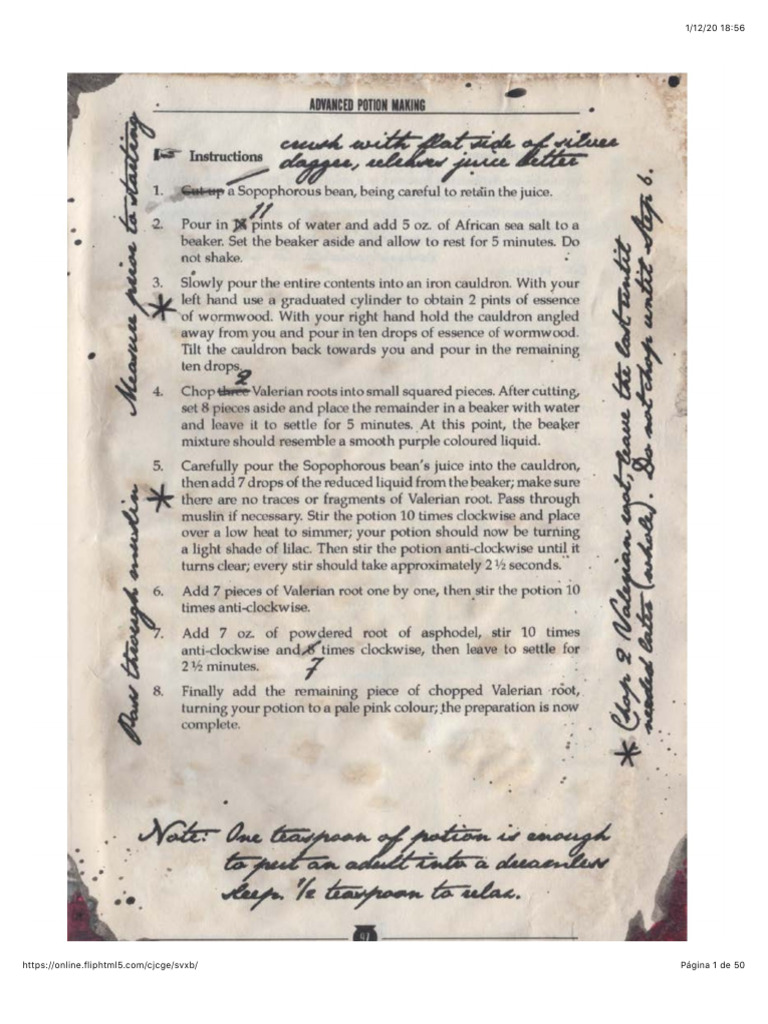 1/12/20 18:56
ADVANCED POTION MAKING
Instructions
crush with flat side of silver
dagger, releases juice better
1. Cut up a Sopophorous bean, being careful to retain the juice.
11
2. Pour in pints of water and add 5 oz. of African sea salt to a
beaker. Set the beaker aside and allow to rest for 5 minutes. Do
not shake.
3. Slowly pour the entire contents into an iron cauldron. With your
left hand use a graduated cylinder to obtain 2 pints of essence
of wormwood. With your right hand hold the cauldron angled
away from you and pour in ten drops of essence of wormwood.
Tilt the cauldron back towards you and pour in the remaining
ten drops.
2
4. Chop three Valerian roots into small squared pieces. After cutting,
set 8 pieces aside and place the remainder in a beaker with water
and leave it to settle for 5 minutes. At this point, the beaker
mixture should resemble a smooth purple coloured liquid.
5. Carefully pour the Sopophorous bean's juice into the cauldron,
then add 7 drops of the reduced liquid from the beaker; make sure
there are no traces or fragments of Valerian root. Pass through
muslin if necessary. Stir the potion 10 times clockwise and place
over a low heat to simmer; your potion should now be turning
a light shade of lilac. Then stir the potion anti-clockwise until it
turns clear; every stir should take approximately 2 ½ seconds.
6. Add 7 pieces of Valerian root one by one, then stir the potion 10
times anti-clockwise.
7. Add 7 oz. of powdered root of asphodel, stir 10 times
anti-clockwise and 8 times clockwise, then leave to settle for
2 ½ minutes.
7
8. Finally add the remaining piece of chopped Valerian root,
turning your potion to a pale pink colour; the preparation is now
complete.
Measure prior to starting
*
Pass through muslin
*
* Chop 2 Valerian root, leave the last until
needed later (whole). Do not chop until Step 6.
Note: One teaspoon of potion is enough
to put an adult into a dreamless
sleep. ½ teaspoon to relax.
https://online.fliphtml5.com/cjcge/svxb/
Página 1 de 50